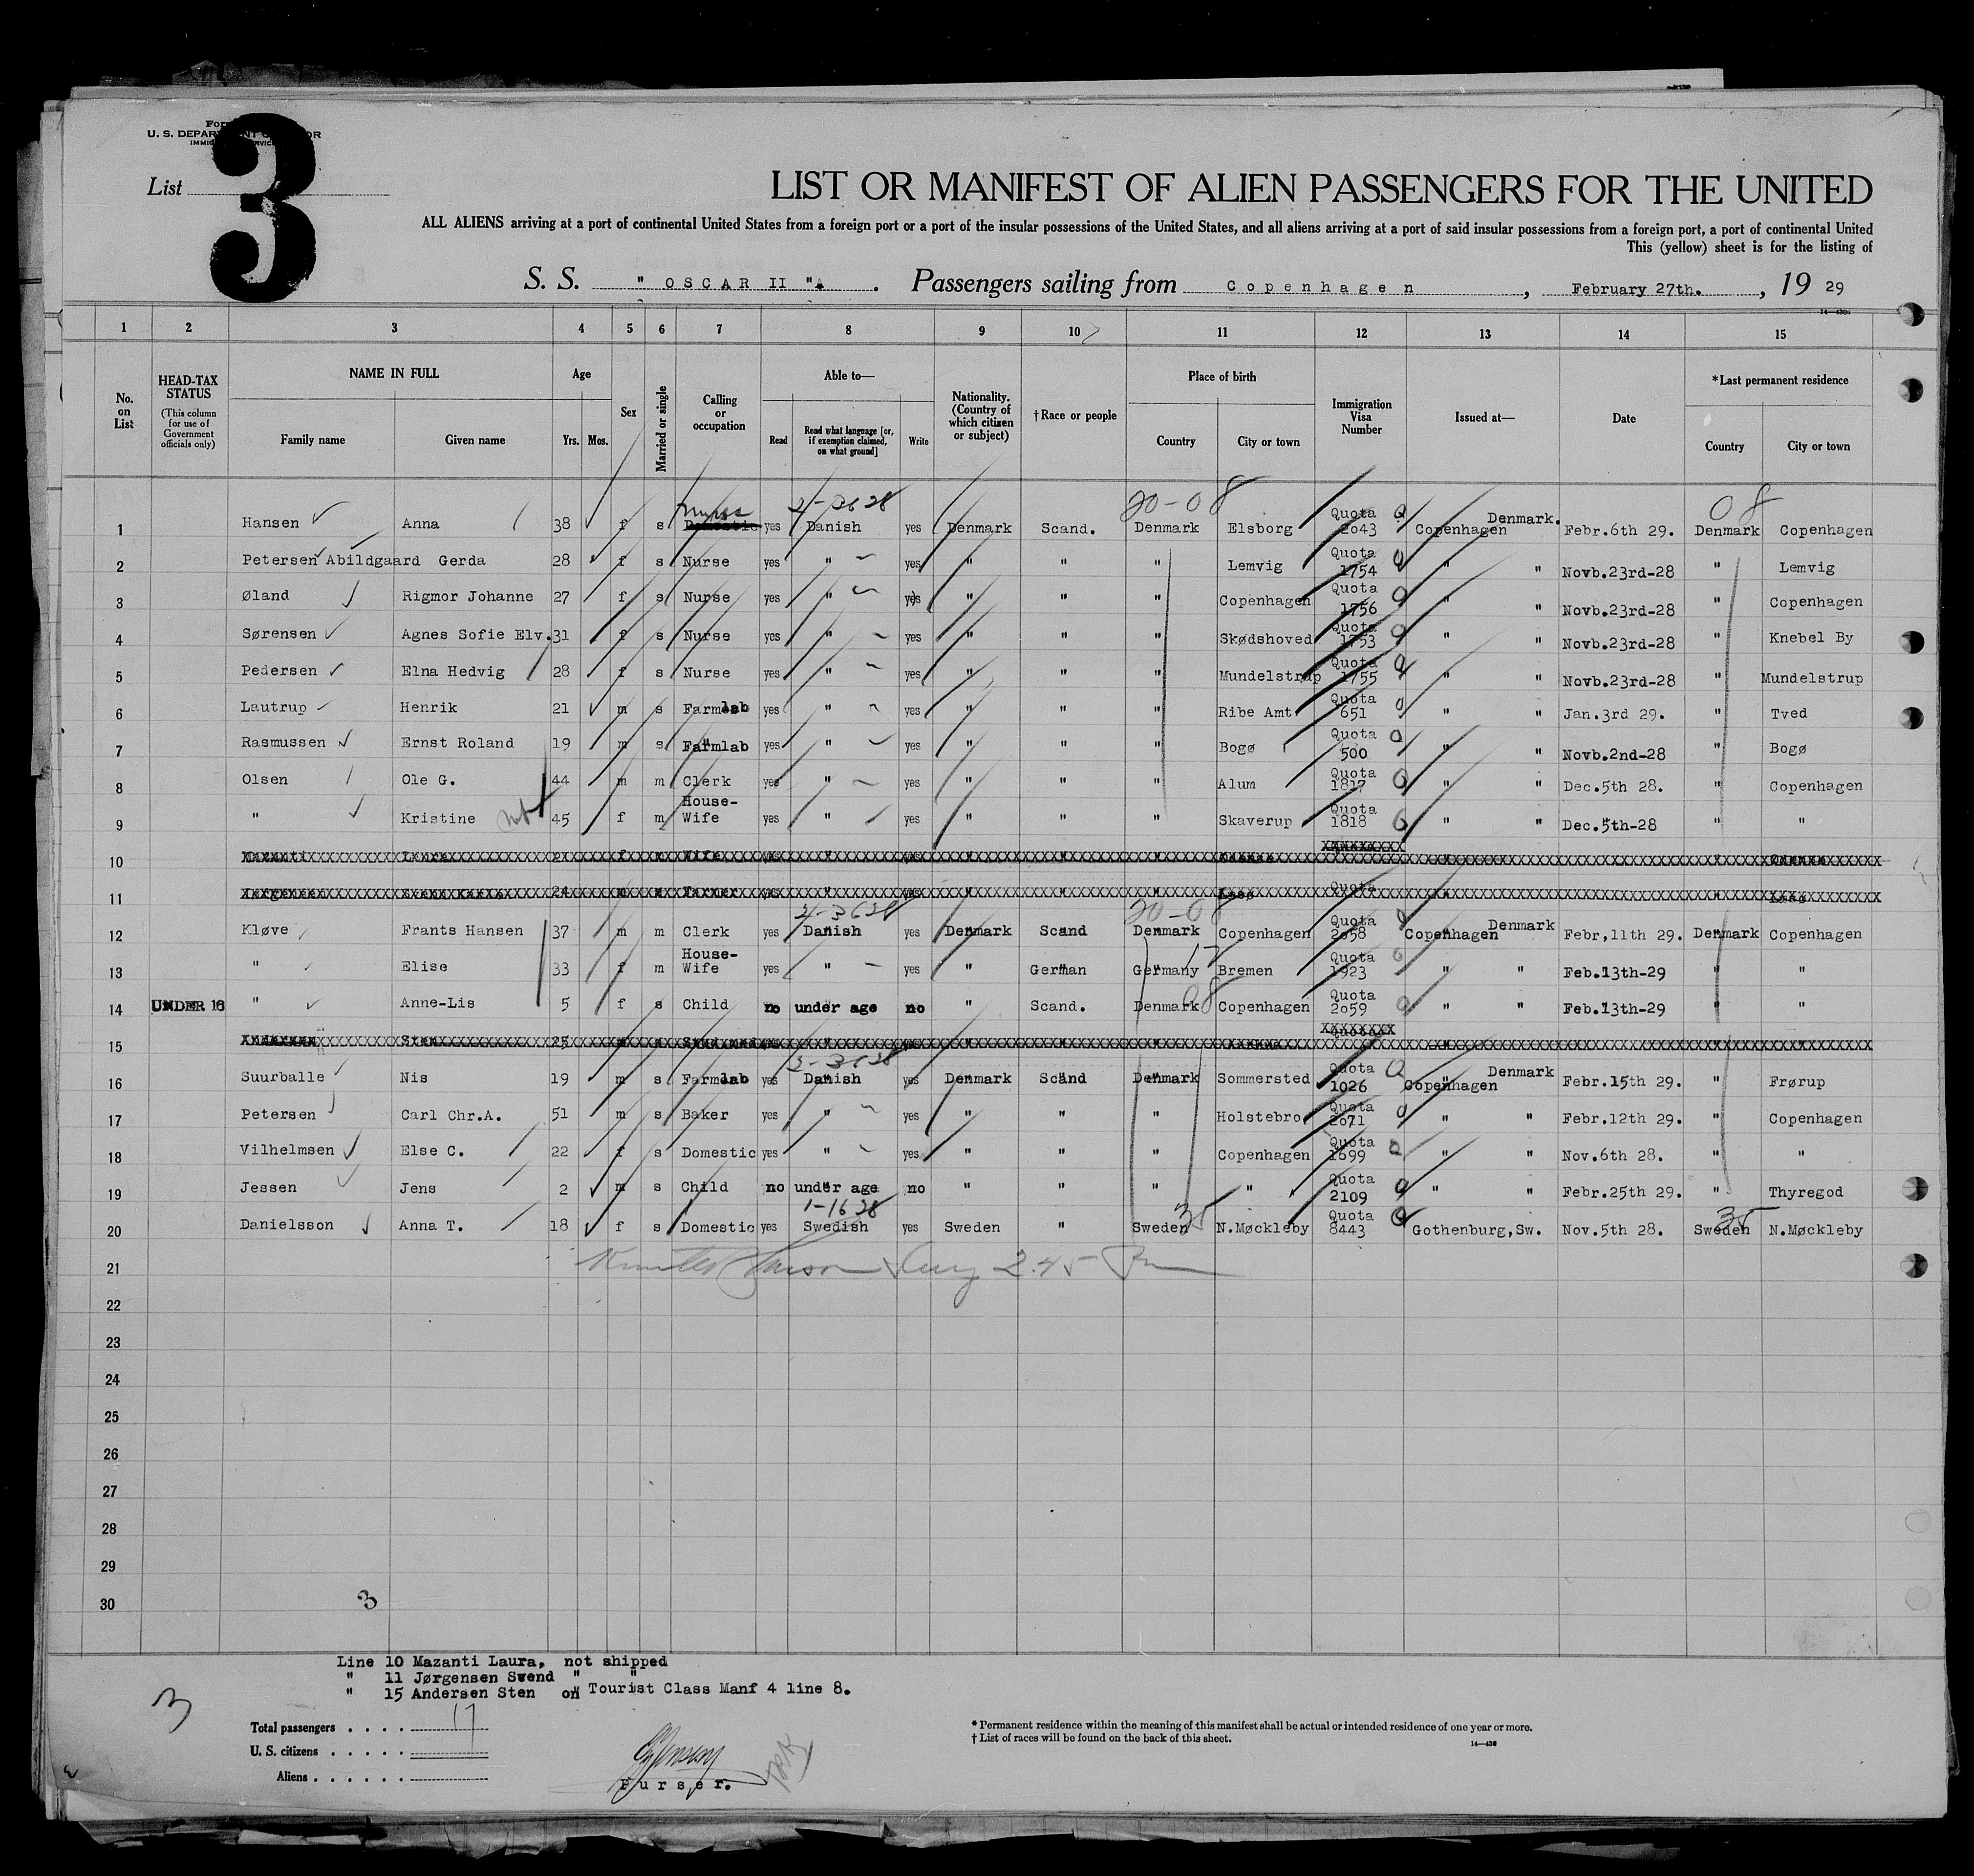 Form
U. S. DEPARTMENT OF LABOR
IMMIGRATION SERVICE
List 3
LIST OR MANIFEST OF ALIEN PASSENGERS FOR THE UNITED
ALL ALIENS arriving at a port of continental United States from a foreign port or a port of the insular possessions of the United States, and all aliens arriving at a port of said insular possessions from a foreign port, a port of continental United
This (yellow) sheet is for the listing of
S. S. " OSCAR II " . Passengers sailing from Copenhagen , February 27th. , 19 29
1 2 3 4 5 6 7 8 9 10 11 12 13 14 15
No. on List
HEAD-TAX STATUS (This column for use of Government officials only)
NAME IN FULL Family name Given name
Age Yrs. Mos.
Sex
Married or single
Calling or occupation
Able to— Read Read what language [or, if exemption claimed, on what ground] Write
Nationality. (Country of which citizen or subject)
†Race or people
Place of birth Country City or town
Immigration Visa Number
Issued at—
Date
*Last permanent residence Country City or town
20-08 08
1 Hansen Anna 38 f s Domestic Nurse yes Danish yes Denmark Scand. Denmark Elsborg Quota 2043 Copenhagen Denmark. Febr.6th 29. Denmark Copenhagen
2 Petersen Abildgaard Gerda 28 f s Nurse yes " yes " " " Lemvig Quota 1754 " " Novb.23rd-28 " Lemvig
3 Øland Rigmor Johanne 27 f s Nurse yes " yes " " " Copenhagen Quota 1756 " " Novb.23rd-28 " Copenhagen
4 Sørensen Agnes Sofie Elv. 31 f s Nurse yes " yes " " " Skødshoved Quota 1753 " " Novb.23rd-28 " Knebel By
5 Pedersen Elna Hedvig 28 f s Nurse yes " yes " " " Mundelstrup Quota 1755 " " Novb.23rd-28 " Mundelstrup
6 Lautrup Henrik 21 m s Farmlab yes " yes " " " Ribe Amt Quota 651 " " Jan.3rd 29. " Tved
7 Rasmussen Ernst Roland 19 m s Farmlab yes " yes " " " Bogø Quota 500 " " Novb.2nd-28 " Bogø
8 Olsen Ole G. 44 m m Clerk yes " yes " " " Alum Quota 1817 " " Dec.5th 28. " Copenhagen
9 " Kristine 45 f m House-Wife yes " yes " " " Skaverup Quota 1818 " " Dec.5th-28 " "
10 Mazanti Laura 21 f m Wife " " " " Odense Quota " " Odense
11 Jørgensen Svend 24 m s Farmer " yes " " " Læsø Quota " " Læsø
20-08
12 Kløve Frants Hansen 37 m m Clerk yes Danish yes Denmark Scand Denmark Copenhagen Quota 2058 Copenhagen Denmark Febr,11th 29. Denmark Copenhagen
13 " Elise 33 f m House-Wife yes " yes " German Germany 17 Bremen Quota 1923 " " Feb.13th-29 " "
14 UNDER 16 " Anne-Lis 5 f s Child no under age no " Scand. Denmark 08 Copenhagen Quota 2059 " " Feb.13th-29 " "
15 Andersen Sten 25 m s " " " " Quota " " "
16 Suurballe Nis 19 m s Farmlab yes Danish yes Denmark Scand Denmark Sommersted Quota 1026 Copenhagen Denmark Febr.15th 29. " Frørup
17 Petersen Carl Chr.A. 51 m s Baker yes " yes " " " Holstebro Quota 2071 " " Febr.12th 29. " Copenhagen
18 Vilhelmsen Else C. 22 f s Domestic yes " yes " " " Copenhagen Quota 1699 " " Nov.6th 28. " "
19 Jessen Jens 2 m s Child no under age no " " " " Quota 2109 " " Febr.25th 29. " Thyregod
20 Danielsson Anna T. 18 f s Domestic yes Swedish yes Sweden " Sweden 35 N.Møckleby Quota 8443 Gothenburg,Sw. Nov.5th 28. Sweden 35 N.Møckleby
21
22
23
24
25
26
27
28
29
30
3
Line 10 Mazanti Laura, not shipped
" 11 Jørgensen Svend " "
" 15 Andersen Sten on Tourist Class Manf 4 line 8.
3
Total passengers . . . . 17
U. S. citizens . . . . .
Aliens . . . . . .
Purser.
* Permanent residence within the meaning of this manifest shall be actual or intended residence of one year or more.
† List of races will be found on the back of this sheet.
14—430